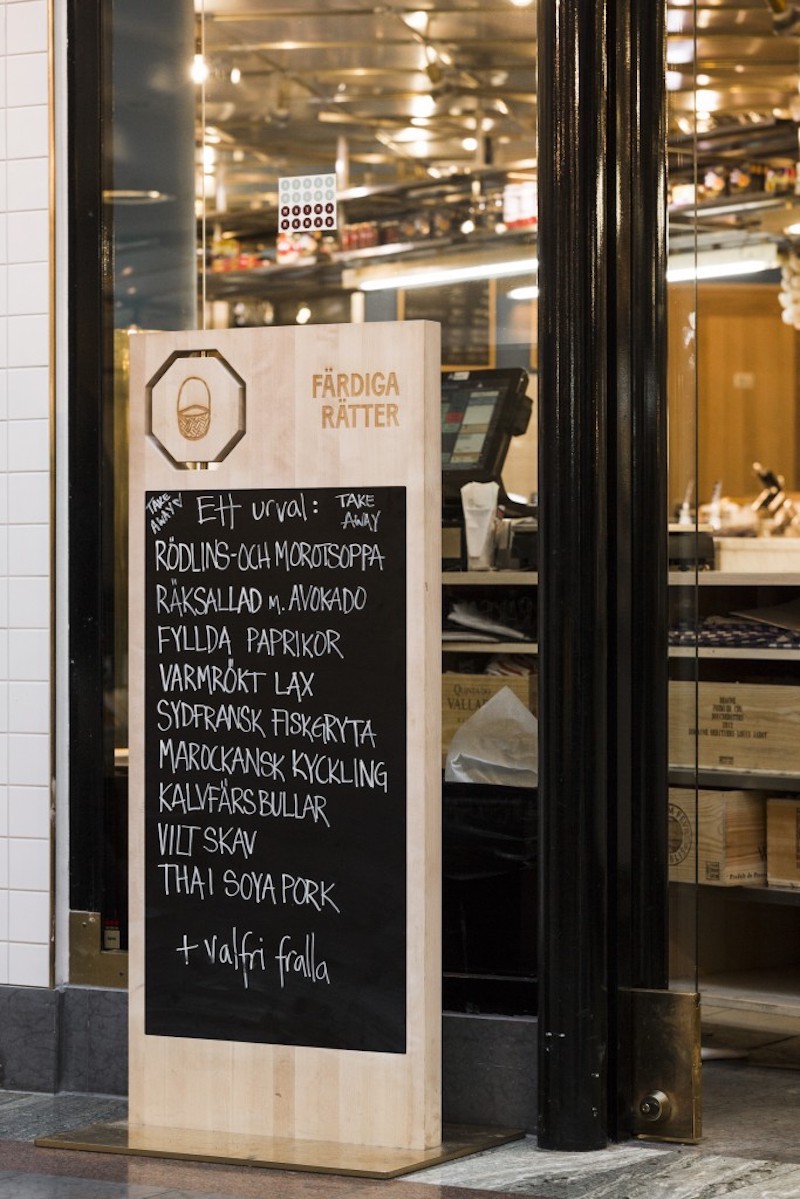 FÄRDIGA
RÄTTER
TAKE
AWAY
Ett urval:
TAKE
AWAY
RÖDLINS-OCH MOROTSOPPA
RÄKSALLAD M. AVOKADO
FYLLDA PAPRIKOR
VARMRÖKT LAX
SYDFRANSK FISKGRYTA
MAROCKANSK KYCKLING
KALVFÄRSBULLAR
VILTSKAV
THAI SOYA PORK
+ valfri fralla